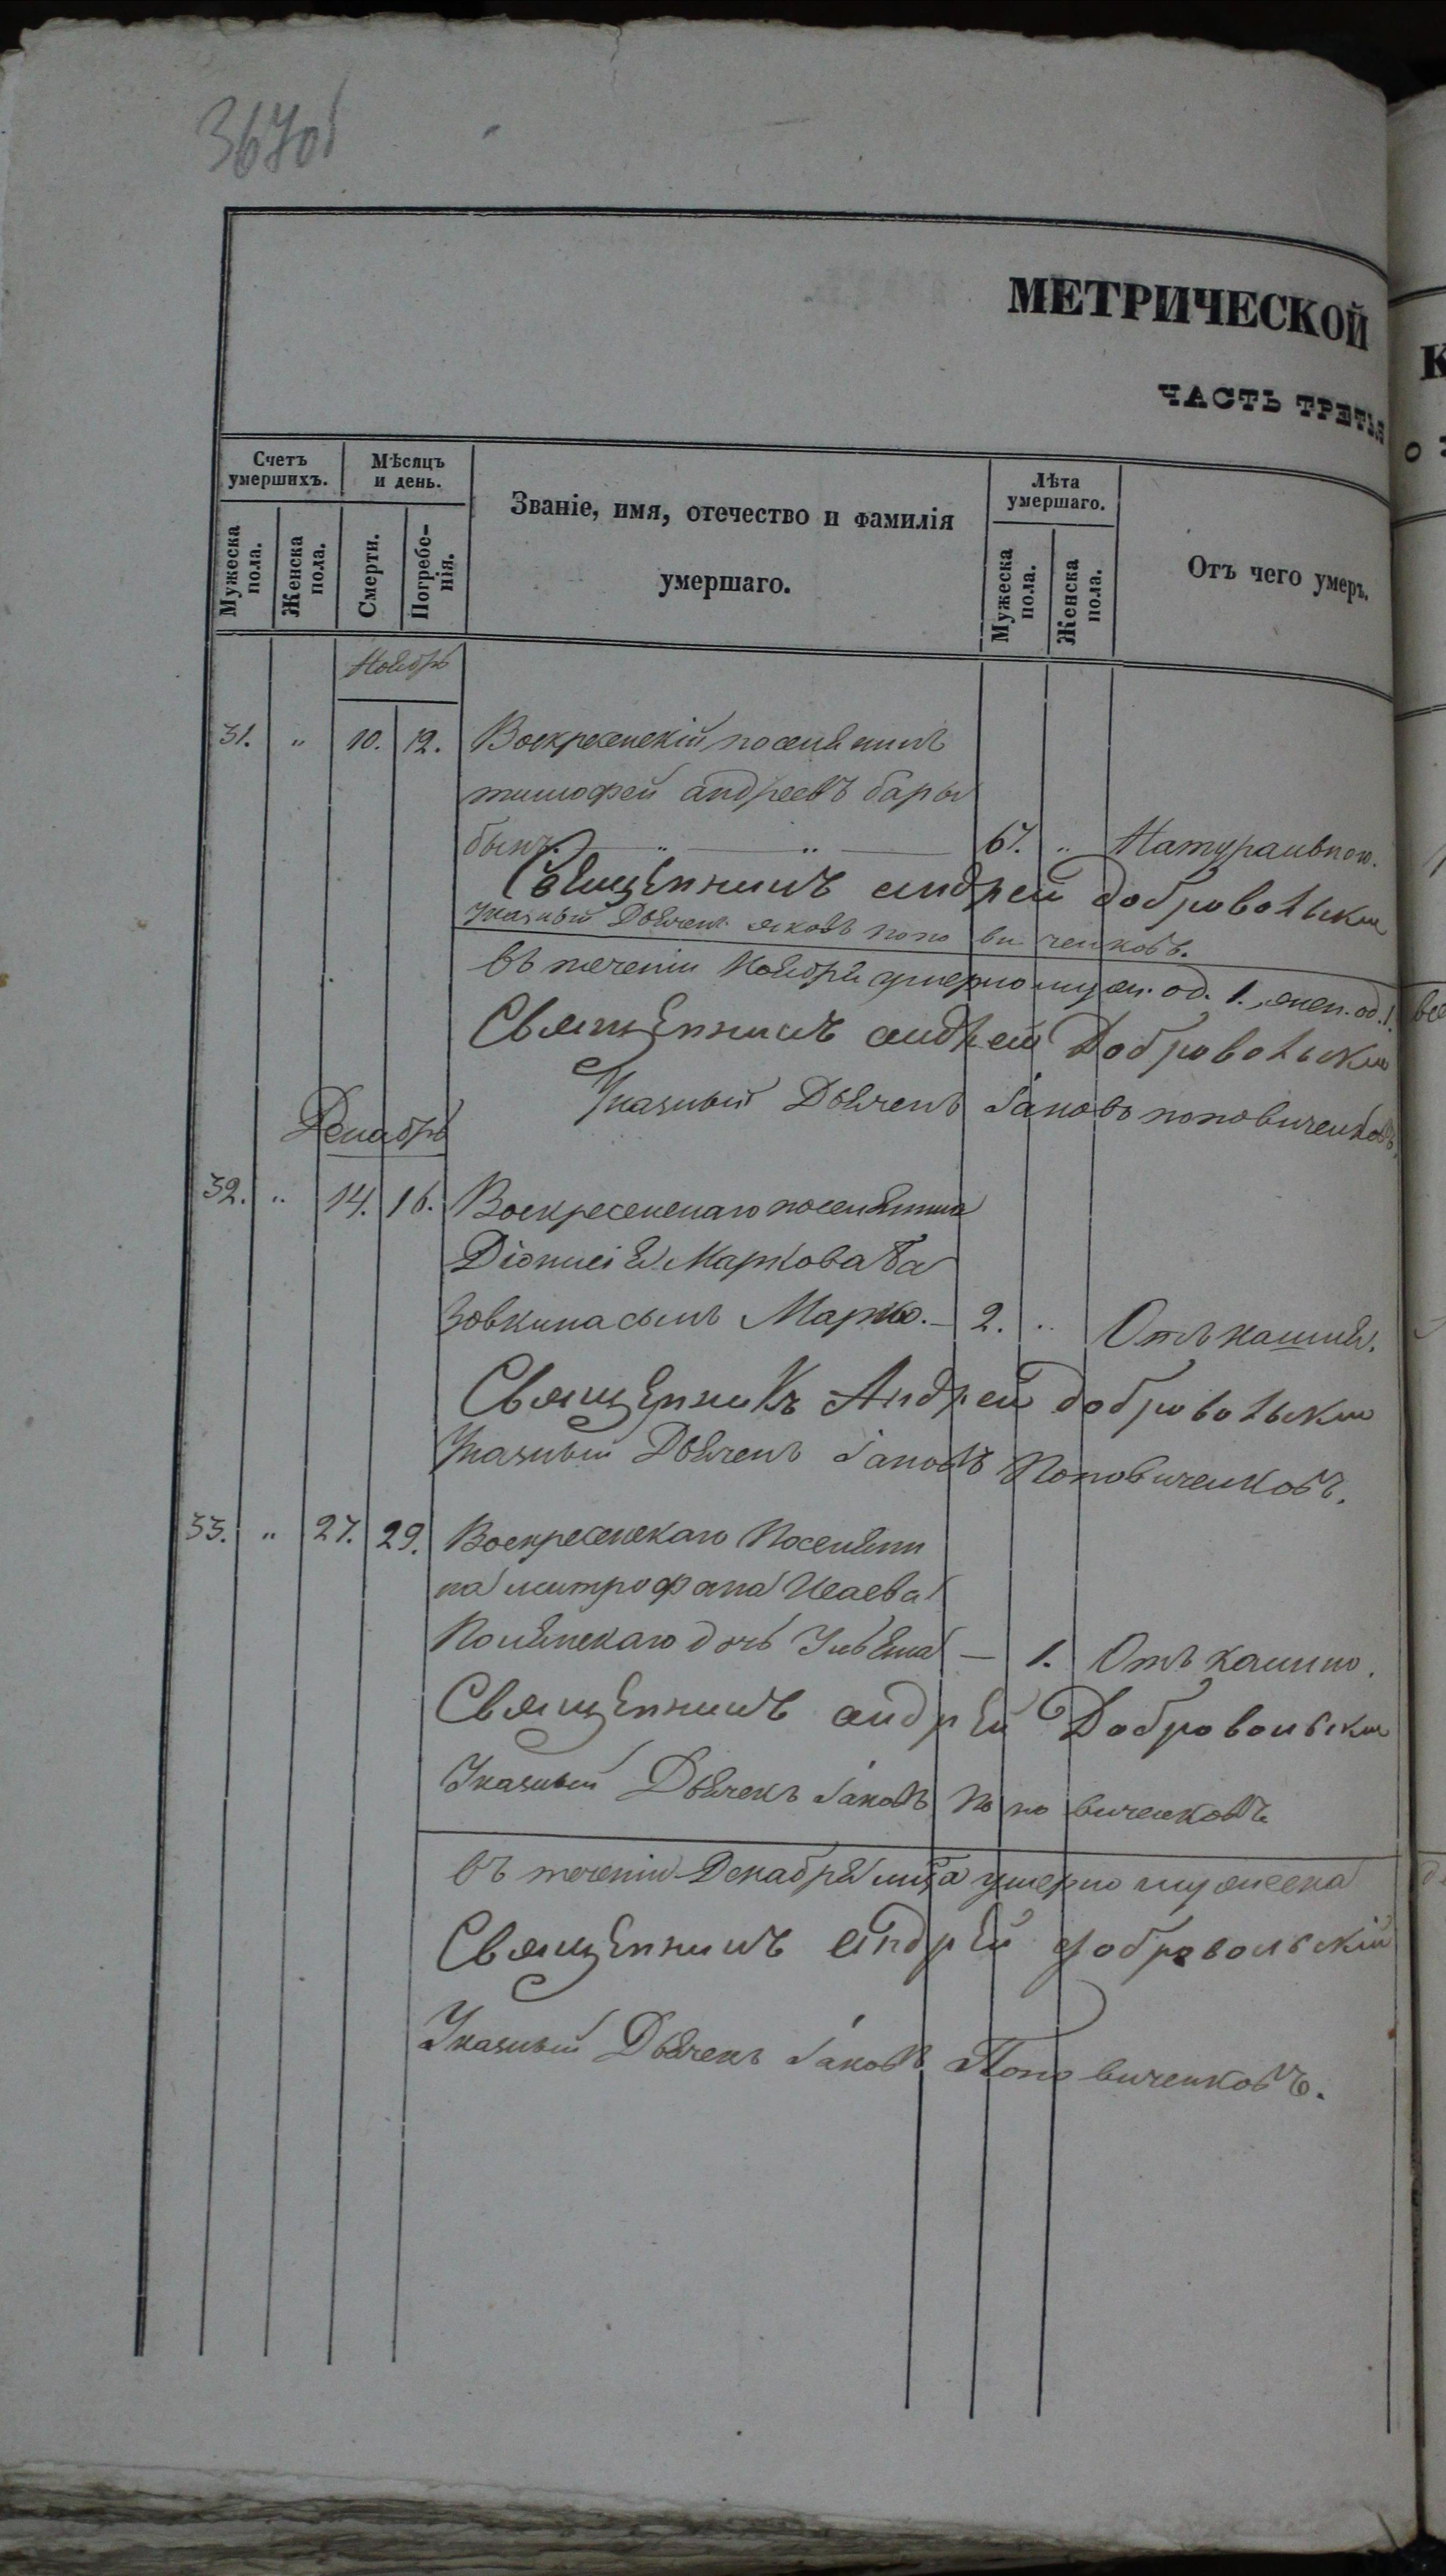 367об
МЕТРИЧЕСКОЙ
ЧАСТЬ ТРЕТЬЯ
Счетъ умершихъ.
Мѣсяцъ и день.
Званіе, имя, отечество и фамилія
умершаго.
Лѣта умершаго.
Отъ чего умеръ.
Мужеска пола.
Женска пола.
Смерти.
Погребе-нія.
Мужеска пола.
Женска пола.
Ноябрь
31. " 10. 12. Воскресенскій поселянинъ
тимофей андреевъ бары
бинъ. " " 67. " Натуральною.
Священникъ андрей добровольски
Указный Дьячекъ яковъ поповиченковъ.
въ теченіи Ноября умерло муж. од. 1., жен. од. 1.
Священникъ андрей Добровольски
Указный Дьячекъ Іаковъ поповиченковъ,
Декабрь
32. " 14. 16. Воскресенскаго поселянина
Діонисія Маркова
сынъ Марко. — 2. " Отъ кашля.
Священникъ Андрей добровольски
Указный Дьячекъ Іаковъ Поповиченковъ.
33. " 27. 29. Воскресенскаго Поселяни
на митрофана Исаева
Полянскаго дочь — 1. Отъ кашлю.
Священникъ андрей Добровольски
Указный Дьячекъ Іаковъ поповиченковъ
въ теченіи Декабря мца умерло мужеска
Священникъ андрей добровольскій
Указный Дьячекъ Іаковъ Поповиченковъ.